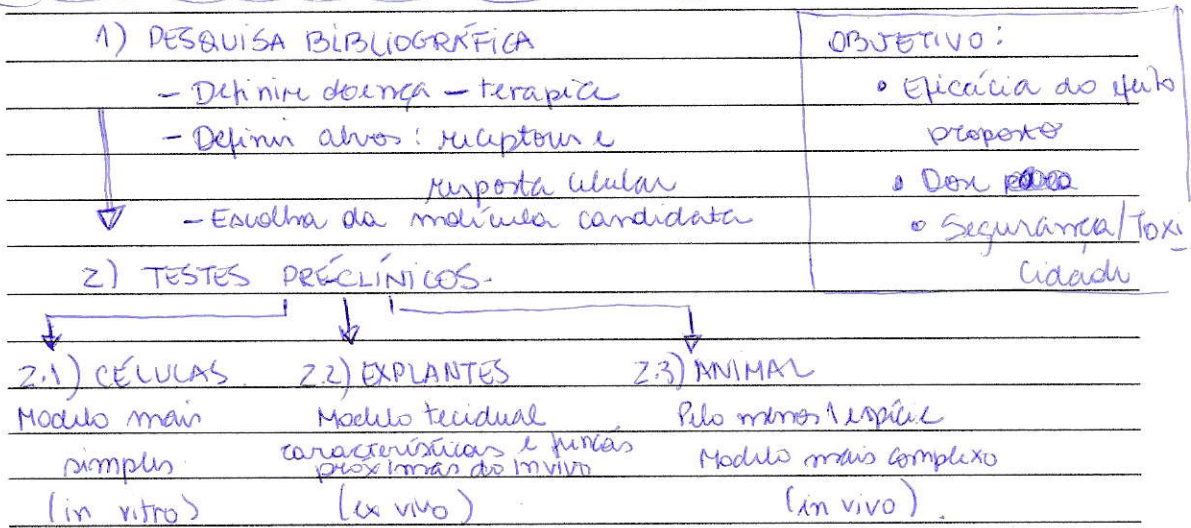 1) PESQUISA BIBLIOGRÁFICA
- Definir doença - terapia
- Definir alvos: receptores e
resposta celular
- Escolha da molécula candidata
OBJETIVO:
• Eficácia do efeito
proposto
• Dose
• Segurança/Toxi
cidade
2) TESTES PRÉCLÍNICOS.
2.1) CÉLULAS.
Modelo mais
simples
(in vitro)
2.2) EXPLANTES
Modelo tecidual
características e funções
próximas do in vivo
(ex vivo)
2.3) ANIMAL
Pelo menos 1 espécie
Modelo mais complexo
(in vivo).